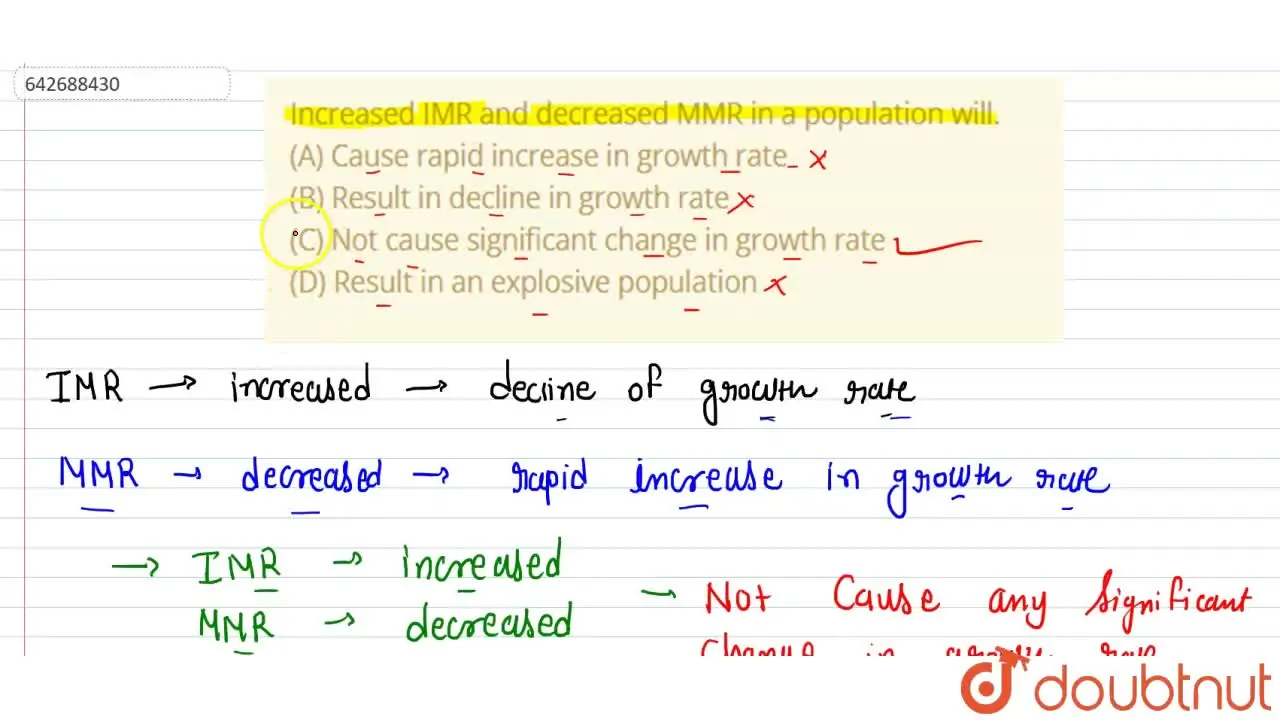 642688430
Increased IMR and decreased MMR in a population will.
(A) Cause rapid increase in growth rate
(B) Result in decline in growth rate
(C) Not cause significant change in growth rate
(D) Result in an explosive population
IMR → increased → decline of growth rate
MMR → decreased → rapid increase in growth rate
→ IMR → increased
MMR → decreased
→ Not Cause any significant
change in
doubtnut